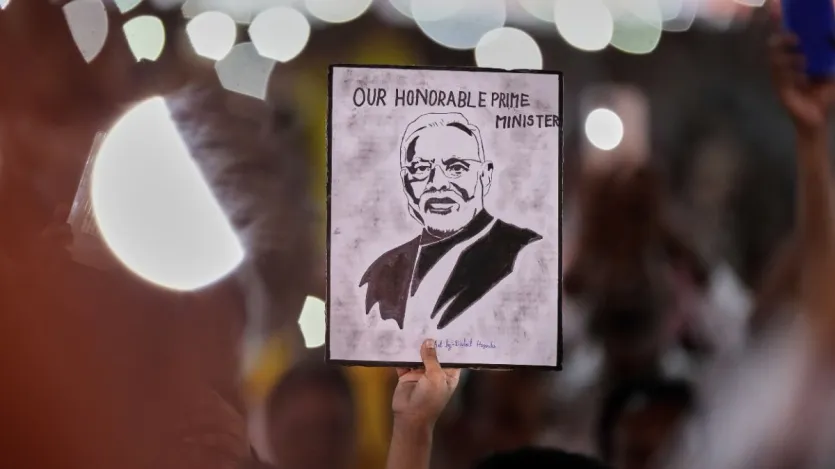 OUR HONORABLE PRIME
MINISTER